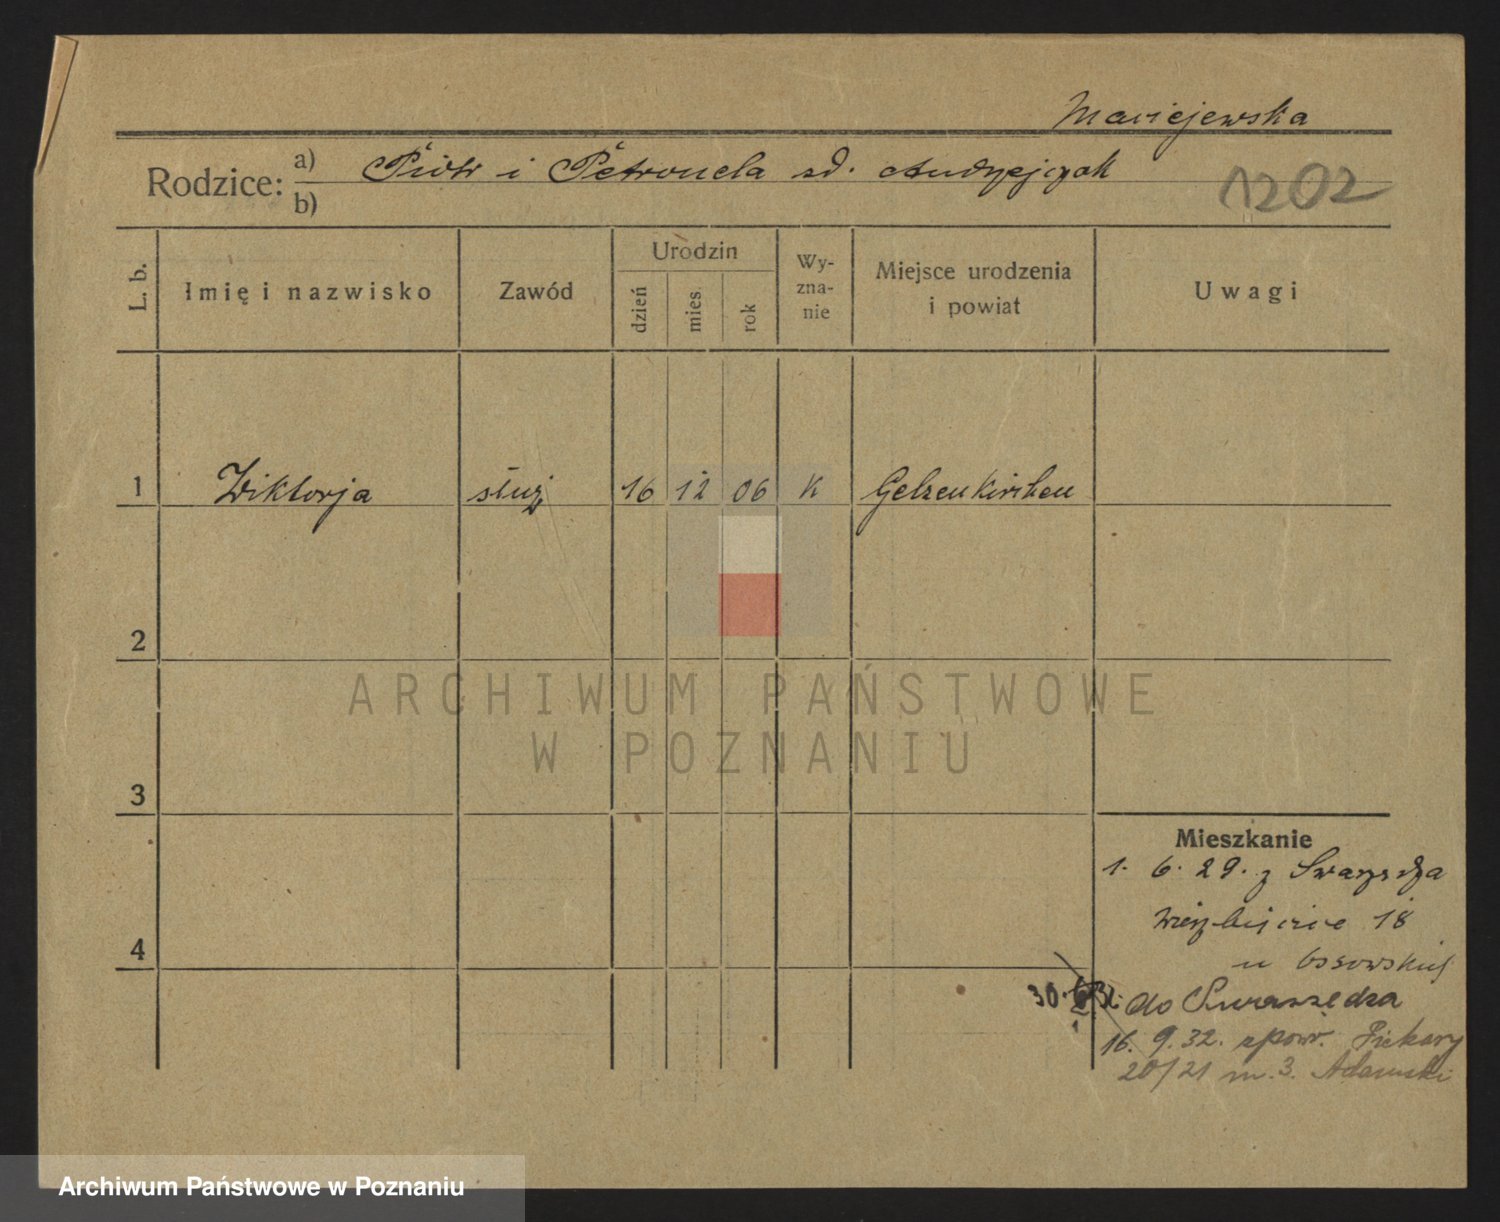 Maciejewska
Rodzice: a) Piotr i Petronela zd. Andrzejczak
b)
1202
L. b.
Imię i nazwisko
Zawód
Urodzin
dzień
mies.
rok
Wy-
zna-
nie
Miejsce urodzenia
i powiat
Uwagi
1 Wiktorja służ 16 12 06 K Gelsenkirchen
2
ARCHIWUM PAŃSTWOWE
W POZNANIU
3
Mieszkanie
1. 6. 29. z Swarzędza
Wierzbięcice 18
u Ossowskiej
4
30. 31. do Swarzędza
16. 9. 32. spowr. Piekary
20/21 m. 3. Adamski
Archiwum Państwowe w Poznaniu